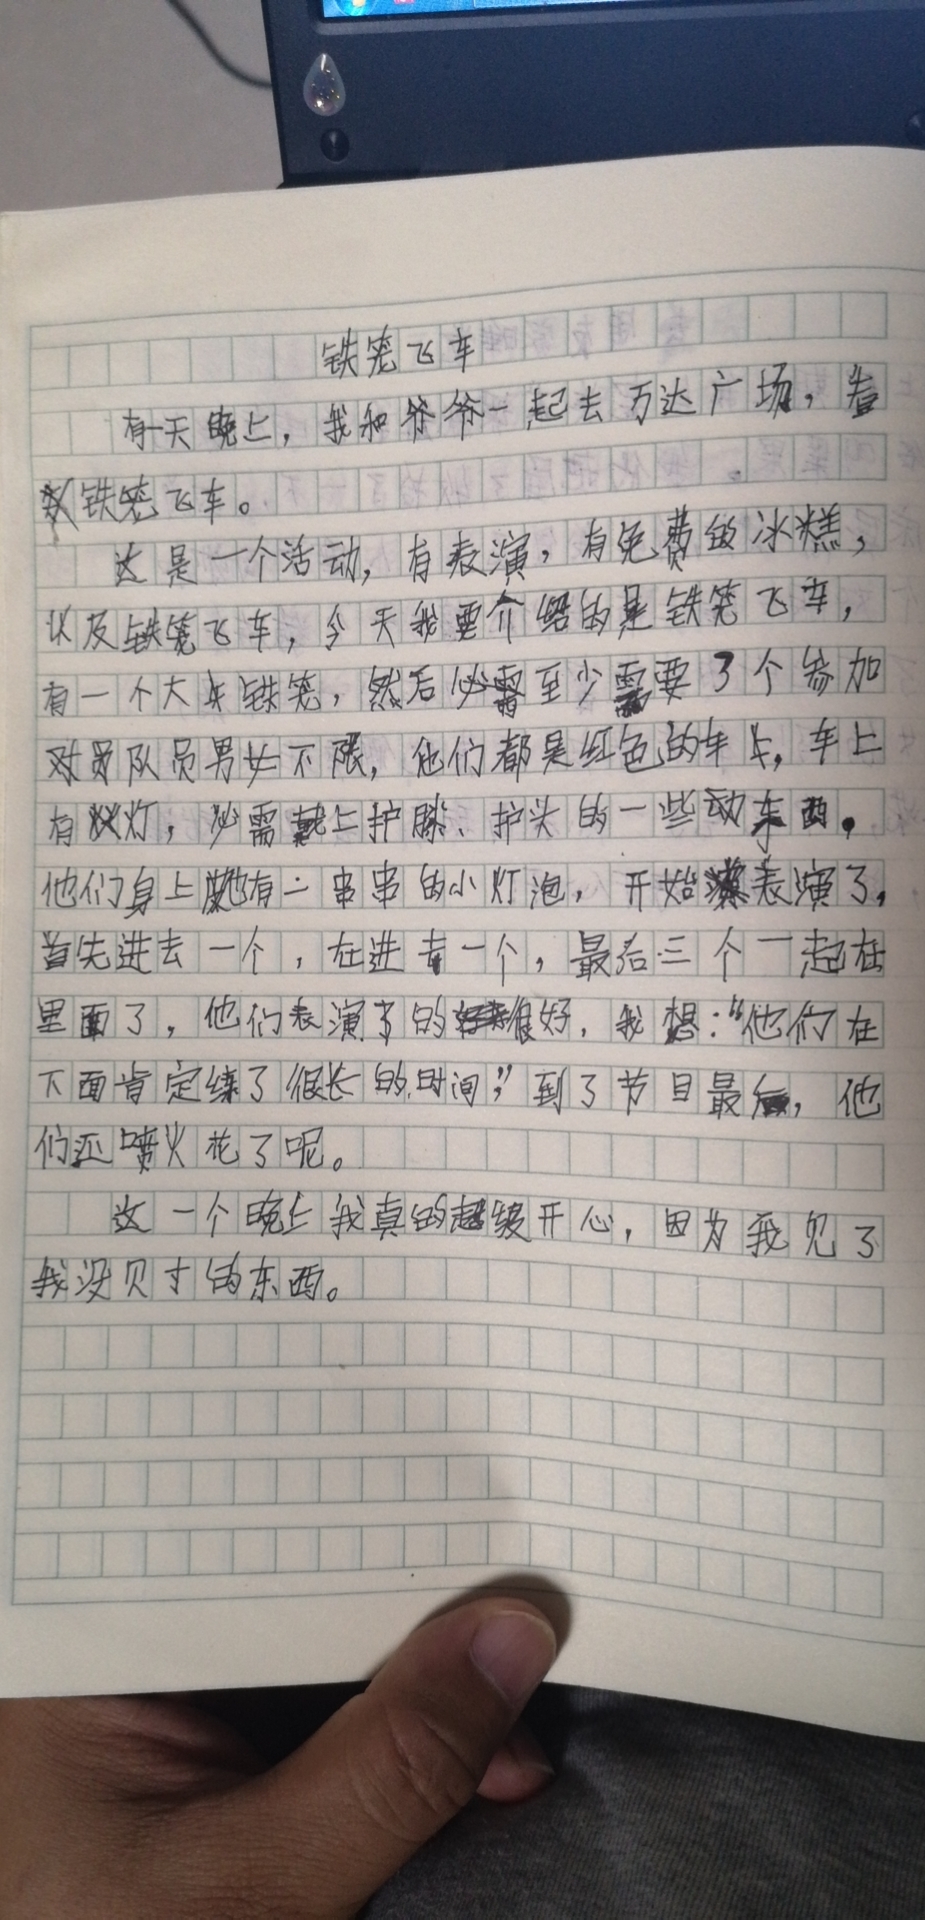 铁笼飞车
有一天晚上，我和爷爷一起去万达广场，看
铁笼飞车。
这是一个活动，有表演，有免费的冰糕，
以及铁笼飞车，今天我要介绍的是铁笼飞车，
有一个大铁笼，然后必需至少需要3个参加
队员男女不限，他们都是红色的车，车上
有灯，必需戴上护膝、护头的一些东西。
他们身上也有一串串的小灯泡，开始表演了，
首先进去一个，在进去一个，最后三个一起在
里面了，他们表演的很好，我想：“他们在
下面肯定练了很长的时间”，到了节目最后，他
们还喷火花了呢。
这一个晚上我真的超级开心，因为我见了
我没见过的东西。